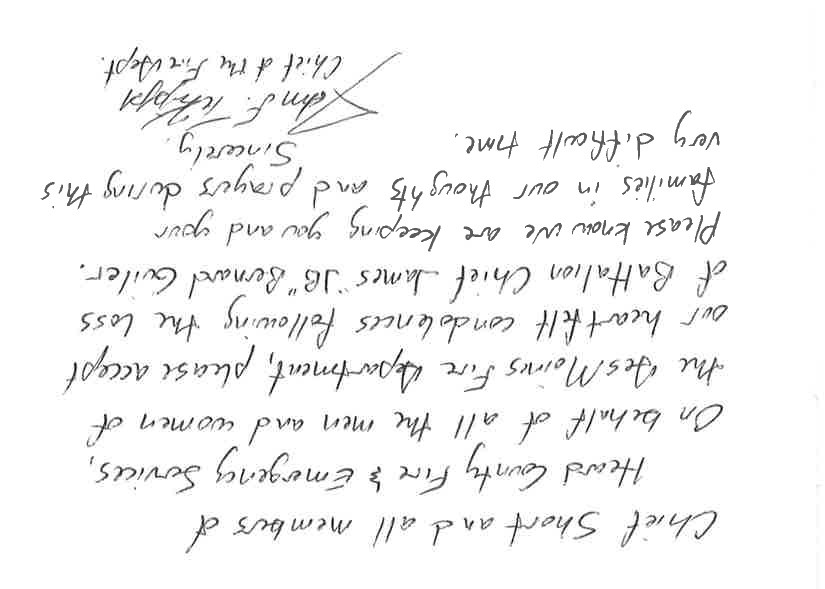 Chief Short and all members of
Heard County Fire & Emergency Services,
On behalf of all the men and women of
the Des Moines Fire Department, please accept
our heartfelt condolences following the loss
of Battalion Chief James "JB" Bernard Criler.
Please know we are keeping you and your
families in our thoughts and prayers during this
very difficult time.
Sincerely,
John F. TeKippe
Chief of the Fire Dept.